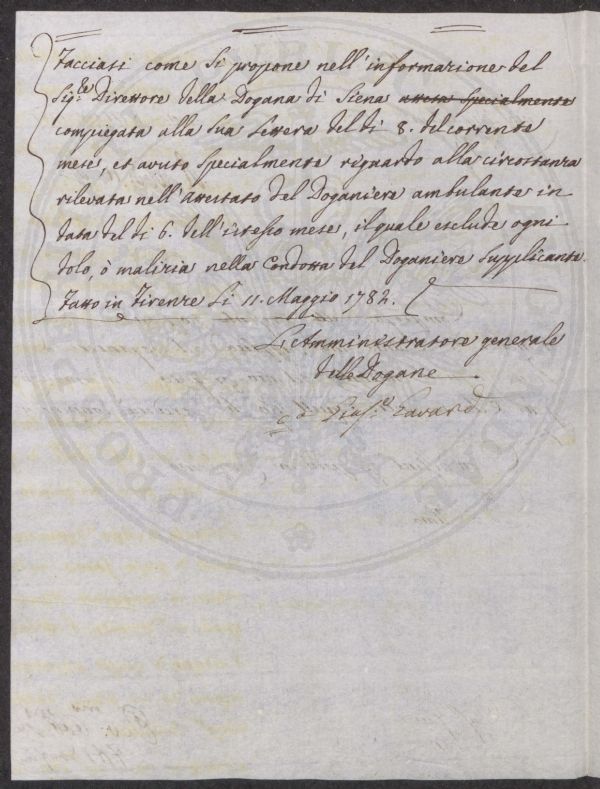 Facciasi come si propone nell'informazione del
Sig.re Direttore della Dogana di Siena attesa specialmente
compiegata alla sua lettera del dì 8. del corrente
mese, et avuto specialmente riguardo alla circostanza
rilevata nell'attestato del Doganiere ambulante in
data del dì 6. dell'istesso mese, il quale esclude ogni
dolo, ò malizia nella Condotta del Doganiere supplicante.
Fatto in Firenze li 11. Maggio 1782.
L'Amministratore generale
delle Dogane